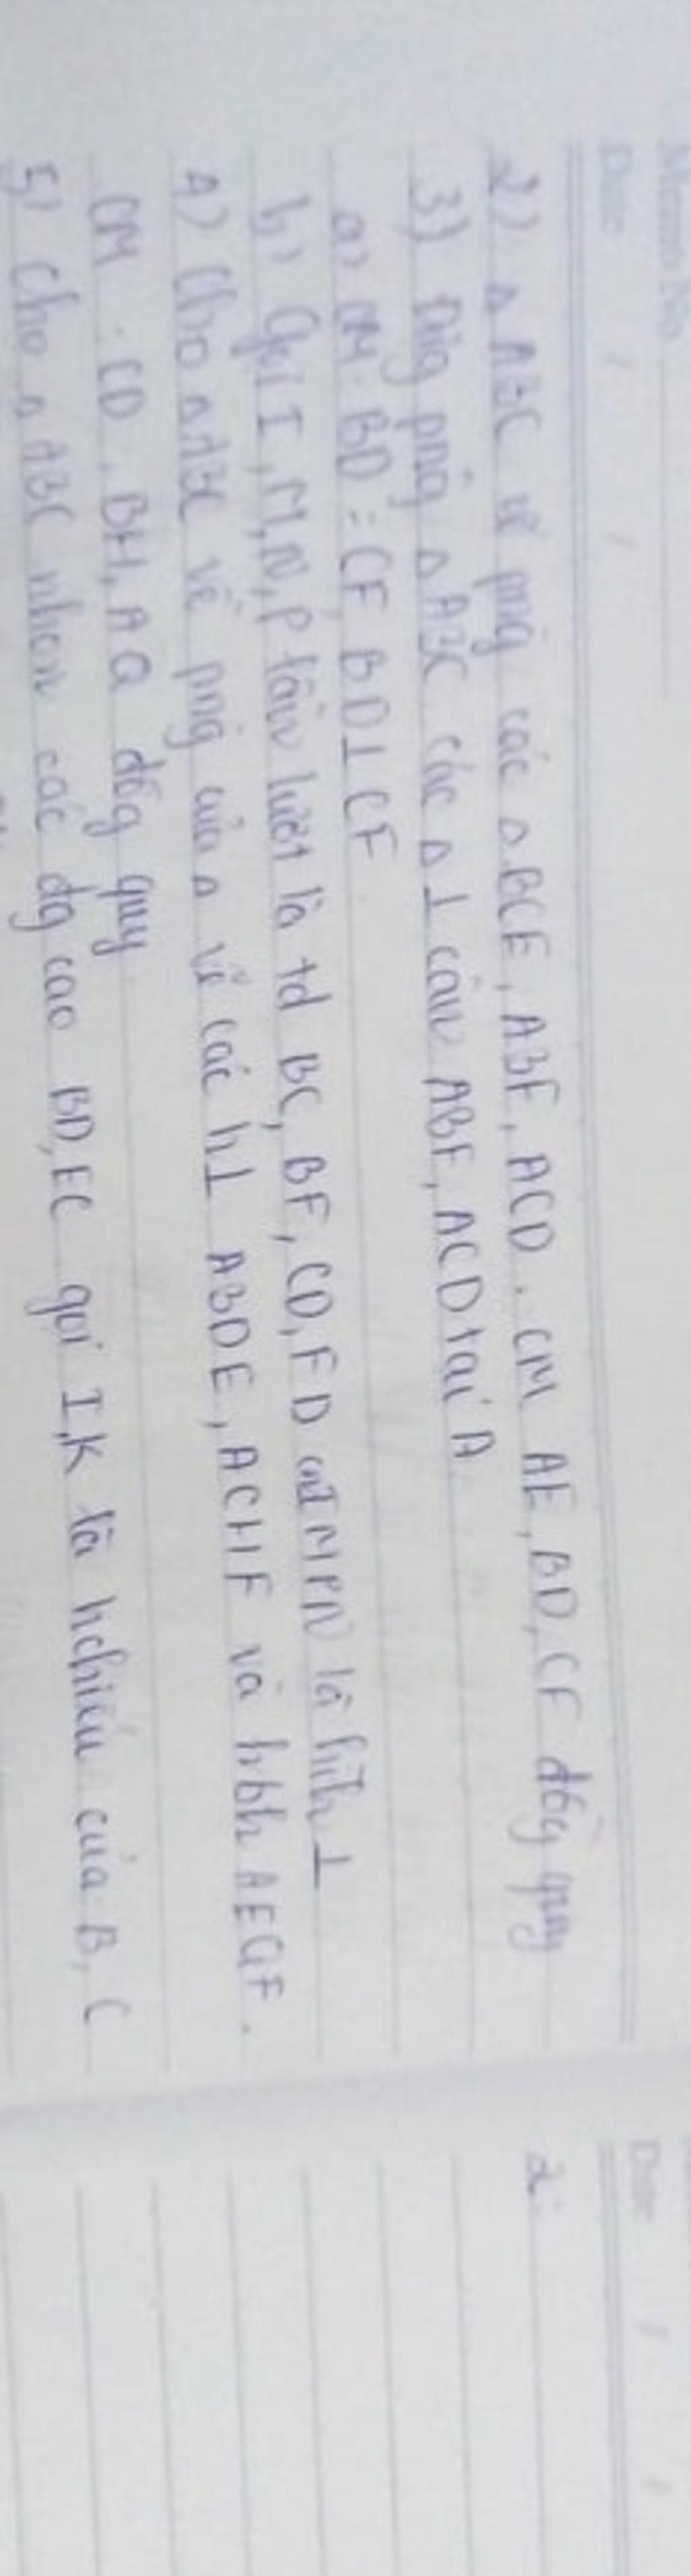 Memo No.
Date / /
2) Δ ABC vẽ png các Δ BCE, ABF, ACD. CM AE, BD, CF đồg quy
3) Phíg png Δ ABC các Δ ⊥ cân ABF, ACD tại A
a) CM: BD = CF BD ⊥ CF.
b) Gọi I, M, N, P lần lượt là td BC, BF, CD, FD cm IMPN là hìh ⊥
4) Cho Δ ABC vẽ png của Δ vẽ các h⊥ ABDE, ACHF và hbh AEQF.
CM: CD, BH, AQ đồg quy
5) Cho Δ ABC nhọn các đg cao BD, EC gọi I, K là hchiếu của B, C
Date / /
2: